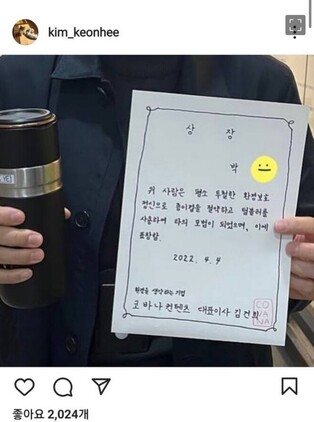 kim_keonhee
상 장
박
귀 사람은 평소 투철한 환경보호
정신으로 종이컵을 절약하고 텀블러를
사용하여 타의 모범이 되었으며, 이에
표창함.
2022. 4. 4
환경을 생각하는 기업
코바나컨텐츠 대표이사 김건희
COVA
NA
좋아요 2,024개